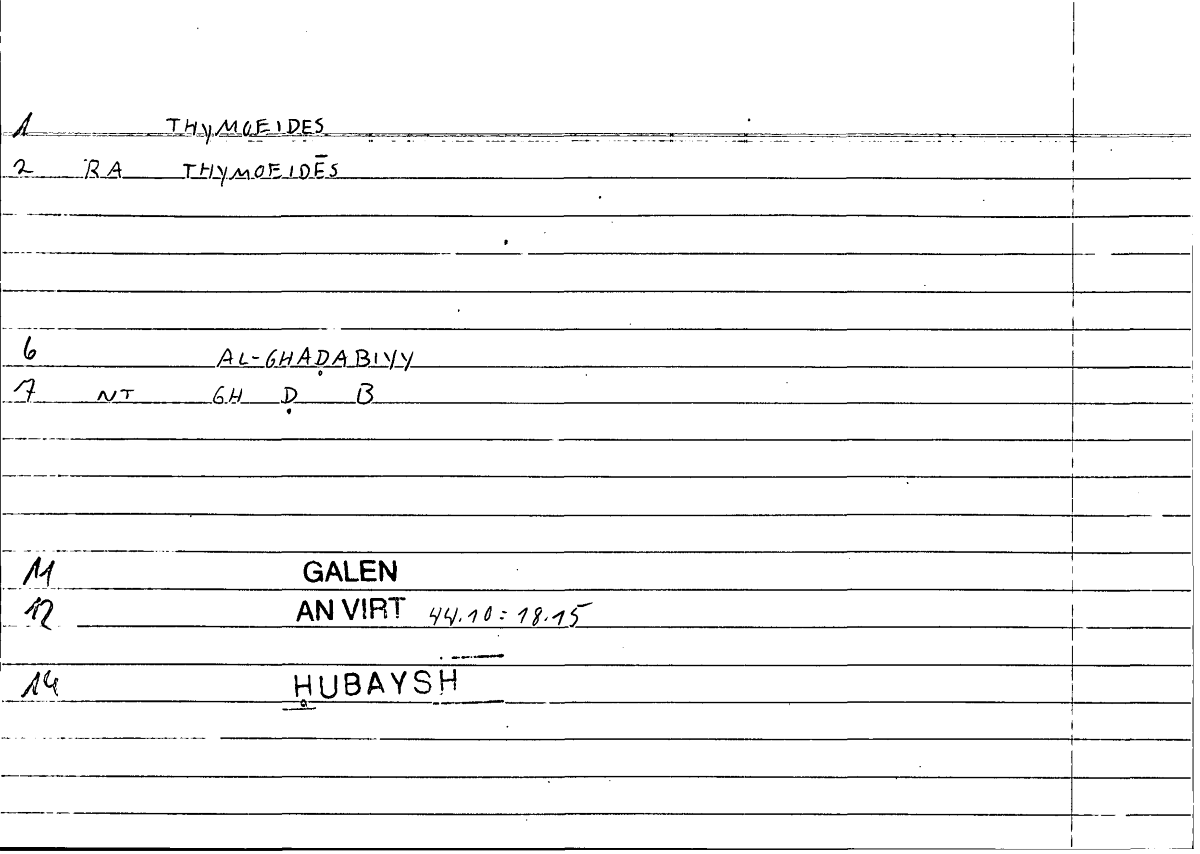 1 THYMOEIDES
2 RA THYMOEIDĒS
6 AL-GHAḌABIYY
7 NT GH Ḍ B
11 GALEN
12 AN VIRT 44.10 = 18.15
14 ḤUBAYSH